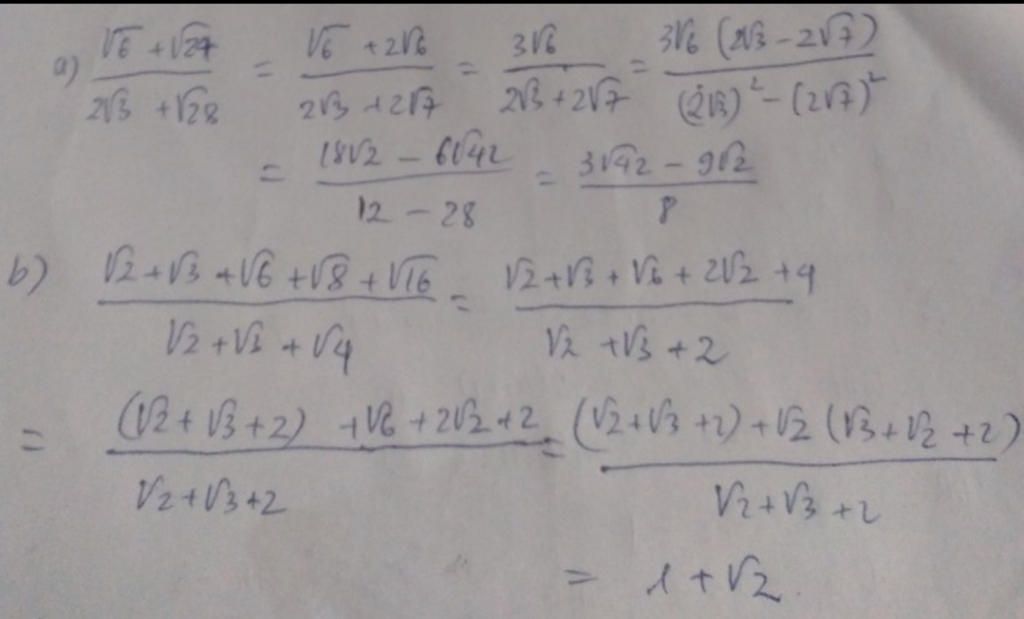 a) (√6 + √24)/(2√3 + √28) = (√6 + 2√6)/(2√3 + 2√7) = 3√6/(2√3 + 2√7) = 3√6 (2√3 - 2√7)/((2√3)² - (2√7)²)
= (18√2 - 6√42)/(12 - 28) = (3√42 - 9√2)/8
b) (√2 + √3 + √6 + √8 + √16)/(√2 + √3 + √4) = (√2 + √3 + √6 + 2√2 + 4)/(√2 + √3 + 2)
= ((√2 + √3 + 2) + √6 + 2√2 + 2)/(√2 + √3 + 2) = ((√2 + √3 + 2) + √2 (√3 + √2 + 2))/(√2 + √3 + 2)
= 1 + √2